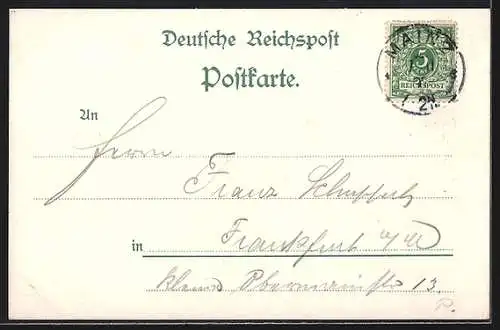 Deutsche Reichspost
Postkarte.
MAINZ
5
REICHSPOST
An
Herrn
Franz
in Frankfurt a/M
Obermainstr 13.